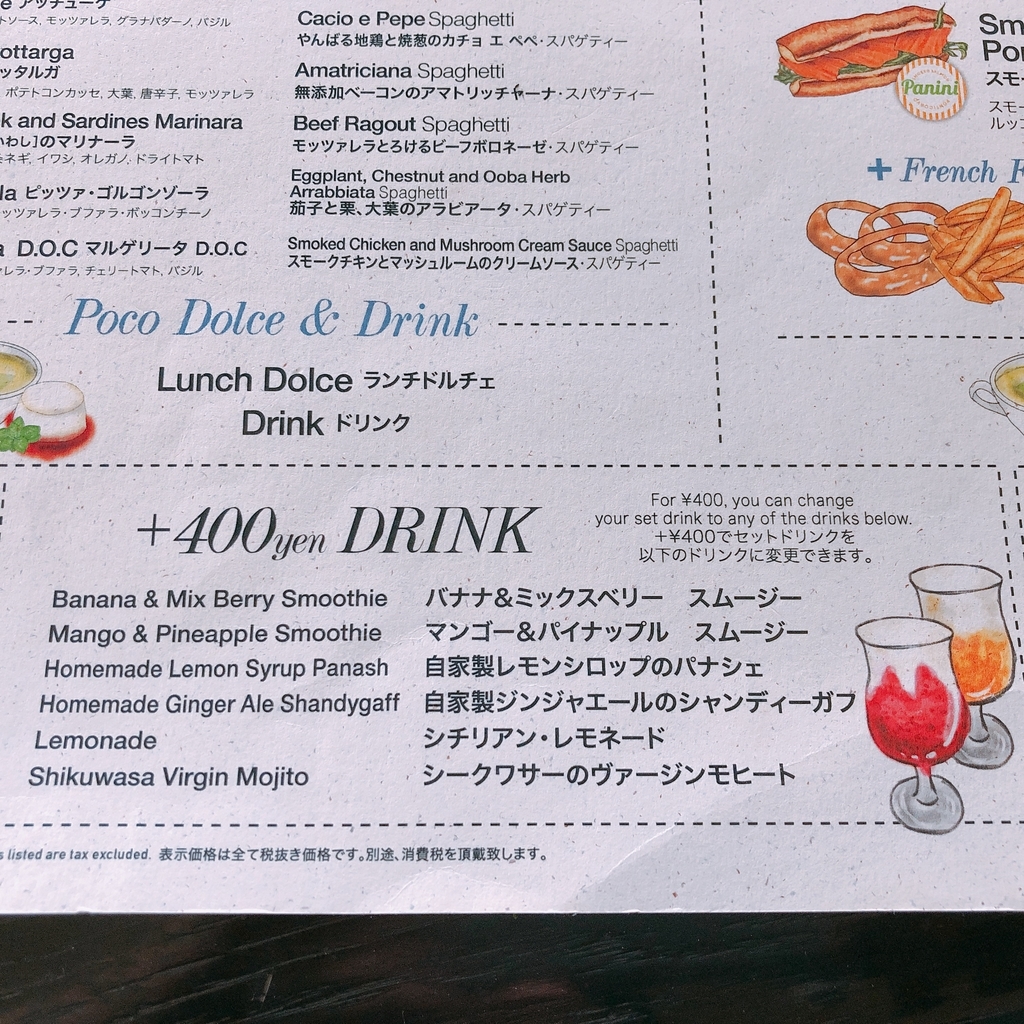 アッチューケ
トソース, モッツァレラ, グラナパダーノ, バジル
ottarga
ッタルガ
ポテトコンカッセ, 大葉, 唐辛子, モッツァレラ
k and Sardines Marinara
いわし]のマリナーラ
ネギ, イワシ, オレガノ, ドライトマト
la ピッツァ・ゴルゴンゾーラ
ッツァレラ・ブファラ・ボッコンチーノ
a D.O.C マルゲリータ D.O.C
ァレラ・ブファラ, チェリートマト, バジル
Cacio e Pepe Spaghetti
やんばる地鶏と焼葱のカチョ エ ペペ・スパゲティー
Amatriciana Spaghetti
無添加ベーコンのアマトリッチャーナ・スパゲティー
Beef Ragout Spaghetti
モッツァレラとろけるビーフボロネーゼ・スパゲティー
Eggplant, Chestnut and Ooba Herb
Arrabbiata Spaghetti
茄子と栗、大葉のアラビアータ・スパゲティー
Smoked Chicken and Mushroom Cream Sauce Spaghetti
スモークチキンとマッシュルームのクリームソース・スパゲティー
Panini
Sm
Por
スモー
スモー
ルッコ
+ French F
Poco Dolce & Drink
Lunch Dolce ランチドルチェ
Drink ドリンク
+400yen DRINK
For ¥400, you can change
your set drink to any of the drinks below.
+¥400でセットドリンクを
以下のドリンクに変更できます。
Banana & Mix Berry Smoothie バナナ&ミックスベリー スムージー
Mango & Pineapple Smoothie マンゴー&パイナップル スムージー
Homemade Lemon Syrup Panash 自家製レモンシロップのパナシェ
Homemade Ginger Ale Shandygaff 自家製ジンジャエールのシャンディーガフ
Lemonade シチリアン・レモネード
Shikuwasa Virgin Mojito シークワサーのヴァージンモヒート
s listed are tax excluded. 表示価格は全て税抜き価格です。別途、消費税を頂戴致します。